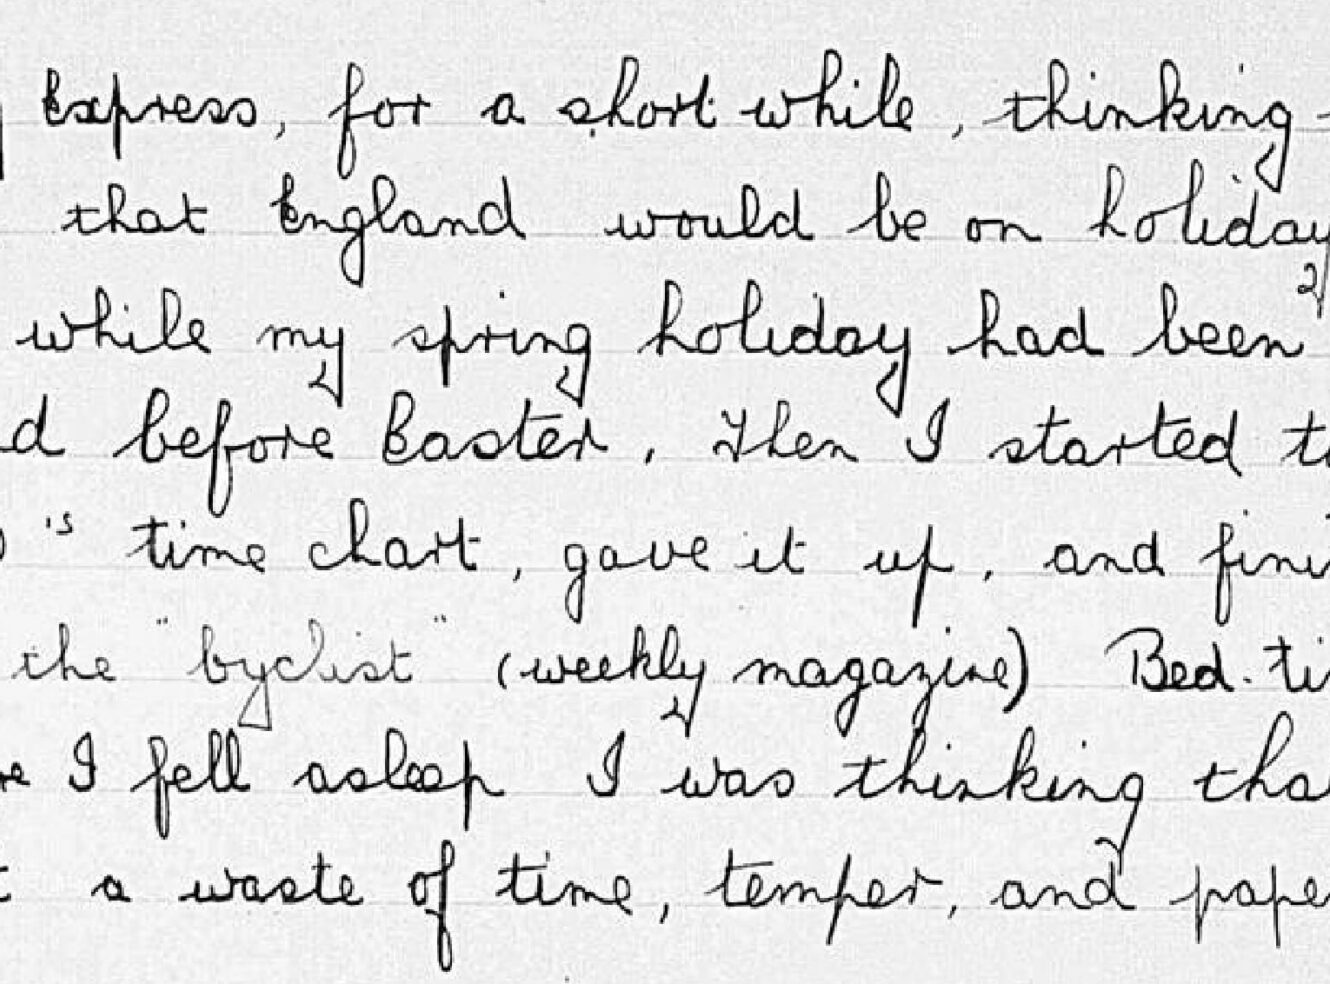 Express, for a short while, thinking -
that England would be on holiday
while my spring holiday had been
d before Easter. Then I started to
's time chart, gave it up, and fini
the "byclist" (weekly magazine) Bed-ti
re I fell asleep I was thinking tha
t a waste of time, temper, and pape